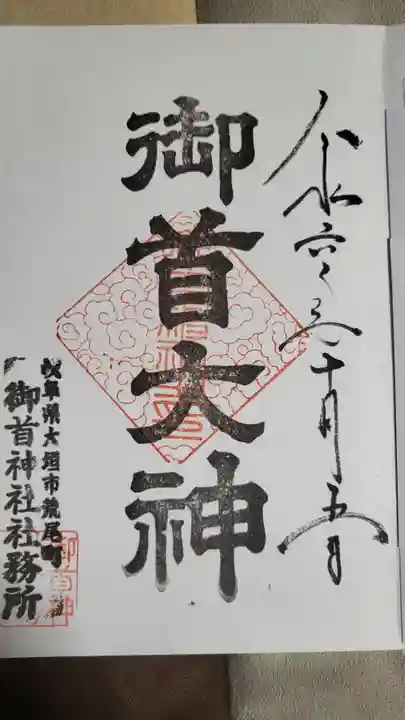 令和六年十月五日
御首大神
岐阜県大垣市荒尾町
御首神社社務所